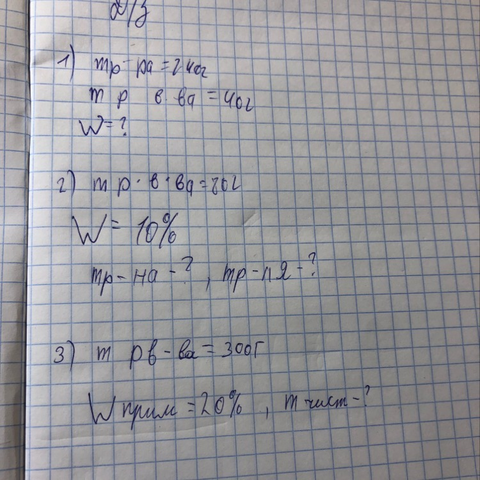 Д/З
1) mр-ра=240г
m р в ва=40г
W=?
2) m р.в.ва=20г
W=10%
mр-на-?, mр-ля-?
3) m рв-ва=300г
Wприм=20%, m чист-?